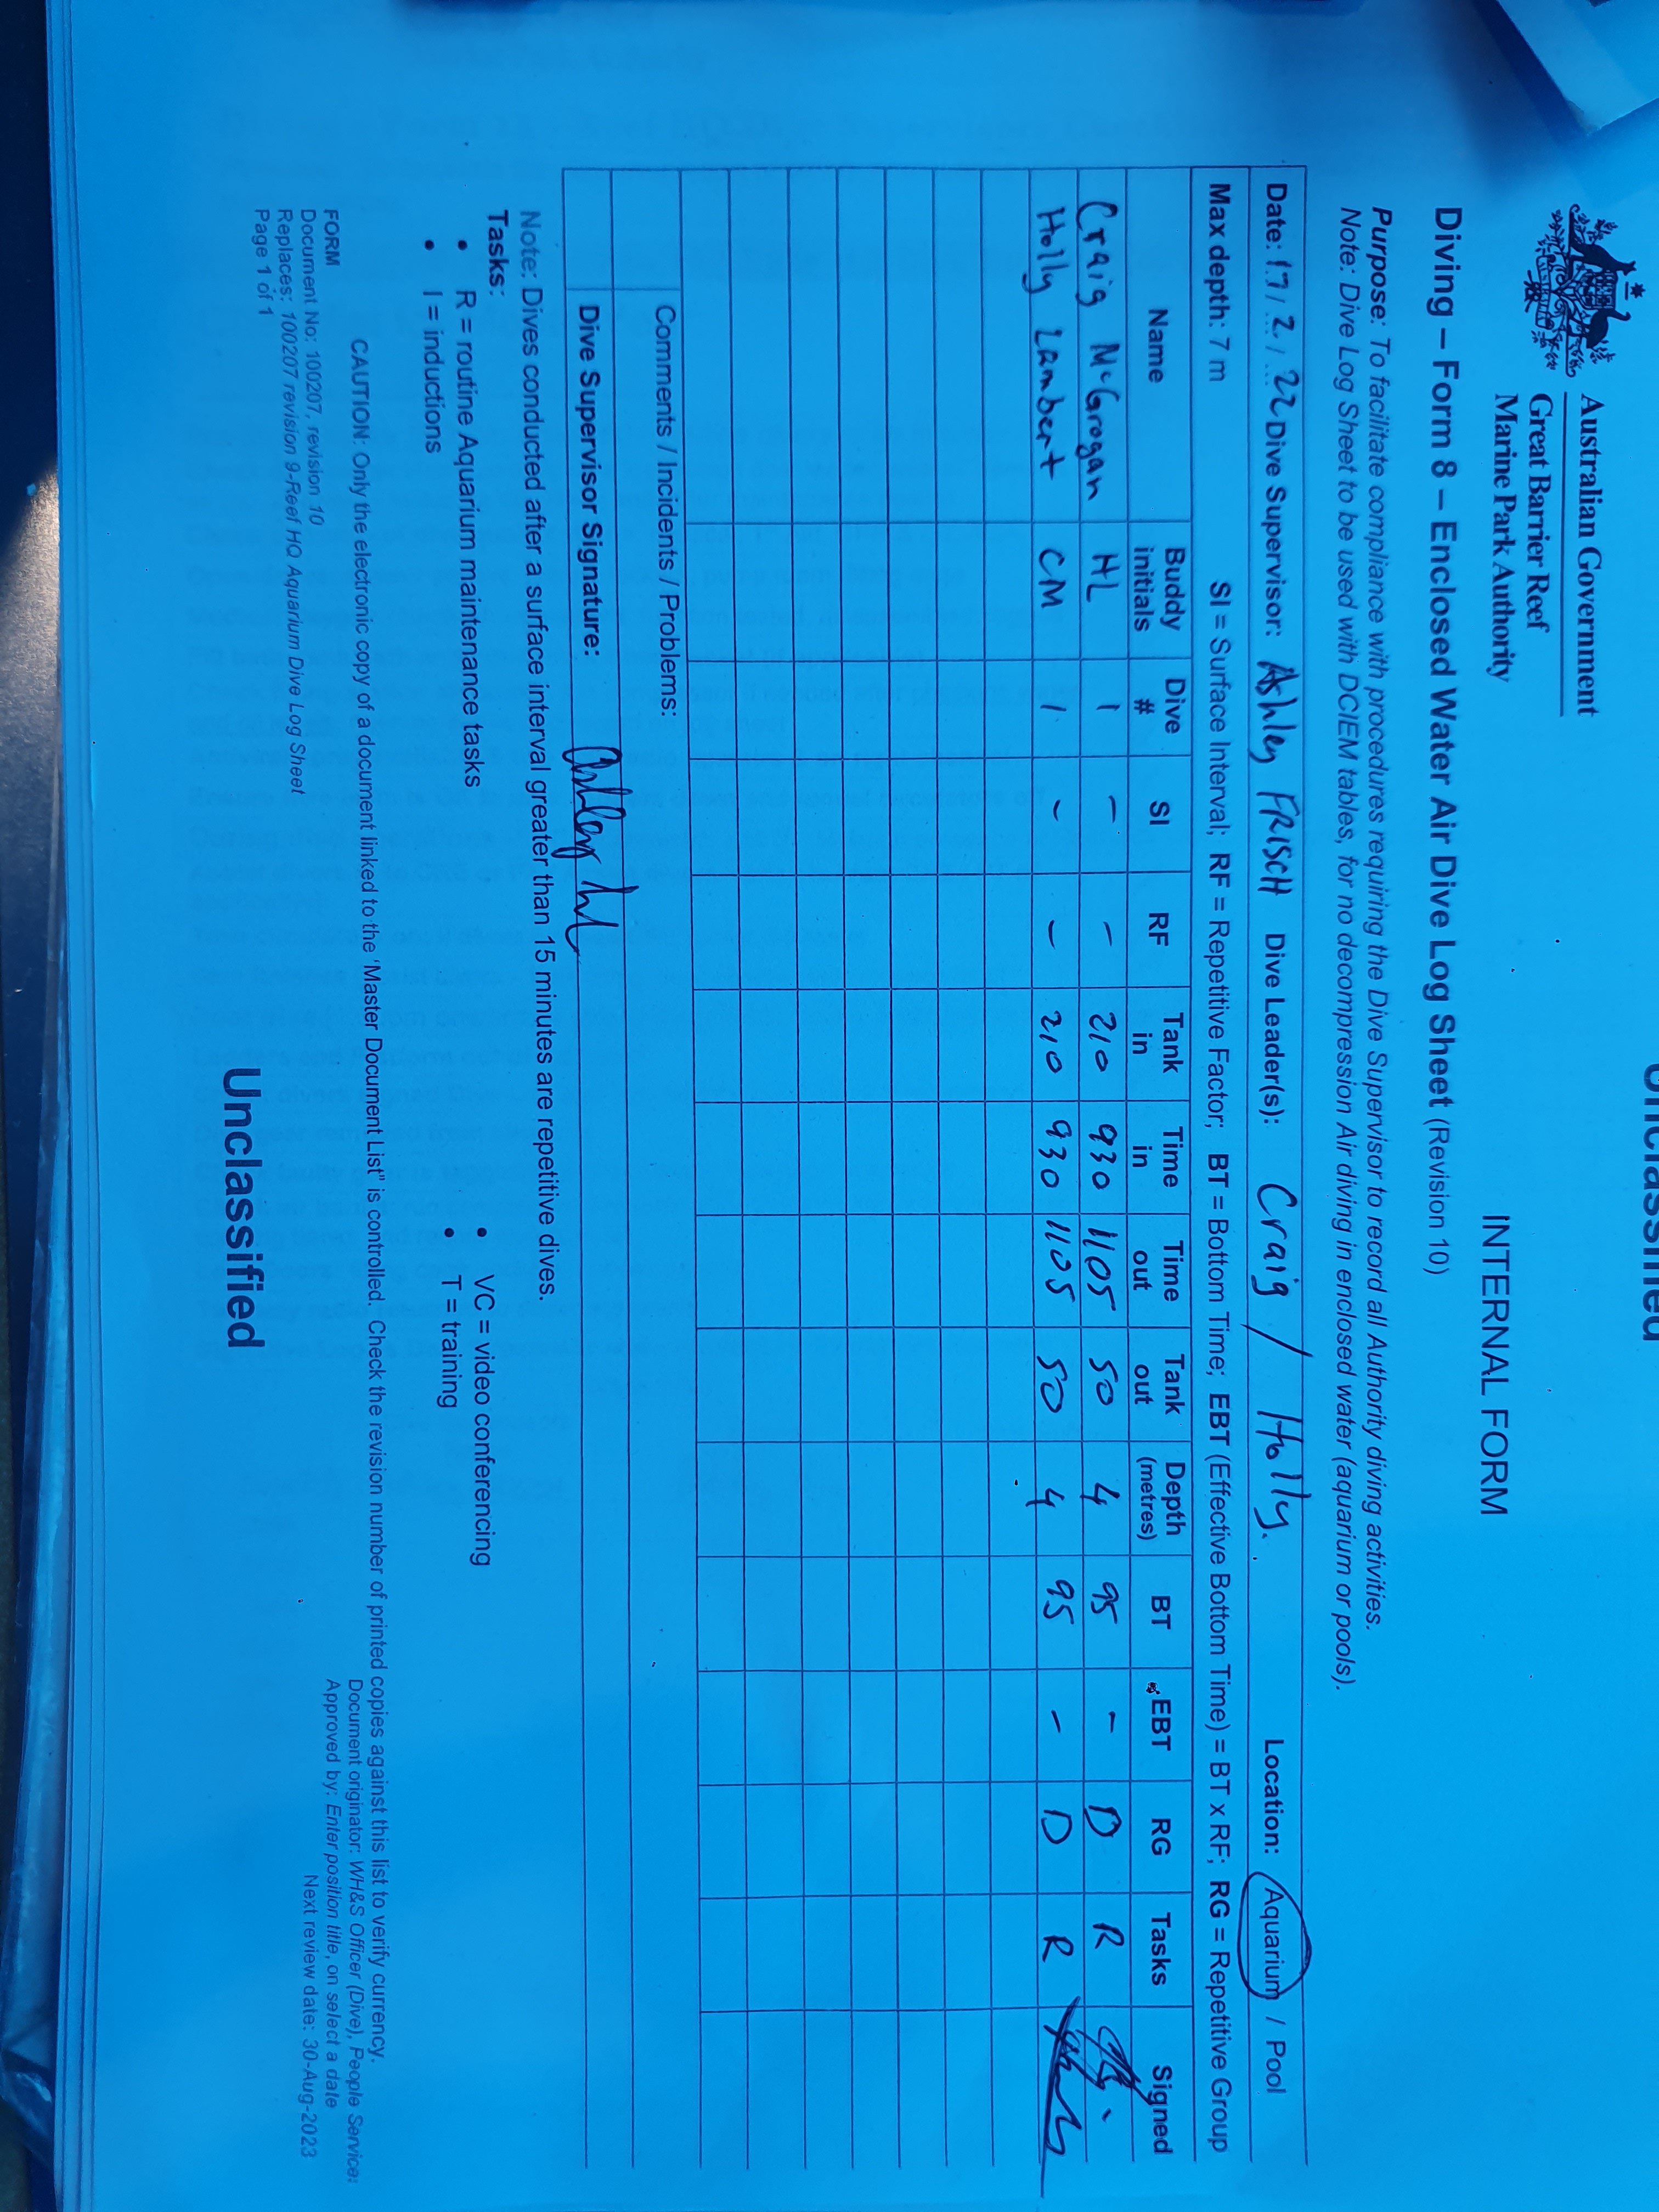 Unclassified
Australian Government
Great Barrier Reef
Marine Park Authority
INTERNAL FORM
Diving – Form 8 – Enclosed Water Air Dive Log Sheet (Revision 10)
Purpose: To facilitate compliance with procedures requiring the Dive Supervisor to record all Authority diving activities.
Note: Dive Log Sheet to be used with DCIEM tables, for no decompression Air diving in enclosed water (aquarium or pools).
Date: 17/ 2 / 22 Dive Supervisor: Ashley FRISCH Dive Leader(s): Craig / Holly. Location: Aquarium / Pool
Max depth: 7 m SI = Surface Interval; RF = Repetitive Factor; BT = Bottom Time; EBT (Effective Bottom Time) = BT x RF; RG = Repetitive Group
Name Buddy initials Dive # SI RF Tank in Time in Time out Tank out Depth (metres) BT EBT RG Tasks Signed
Craig McGrogan HL 1 – – 210 930 1105 50 4 95 – D R
Holly Lambert CM 1 – – 210 930 1105 50 4 95 – D R
Comments / Incidents / Problems:
Dive Supervisor Signature:
Note: Dives conducted after a surface interval greater than 15 minutes are repetitive dives.
Tasks:
• R = routine Aquarium maintenance tasks
• I = inductions
• VC = video conferencing
• T = training
CAUTION: Only the electronic copy of a document linked to the 'Master Document List" is controlled. Check the revision number of printed copies against this list to verify currency.
FORM
Document No: 100207, revision 10
Replaces: 100207 revision 9-Reef HQ Aquarium Dive Log Sheet
Page 1 of 1
Document originator: WH&S Officer (Dive), People Services
Approved by: Enter position title, on select a date
Next review date: 30-Aug-2023
Unclassified